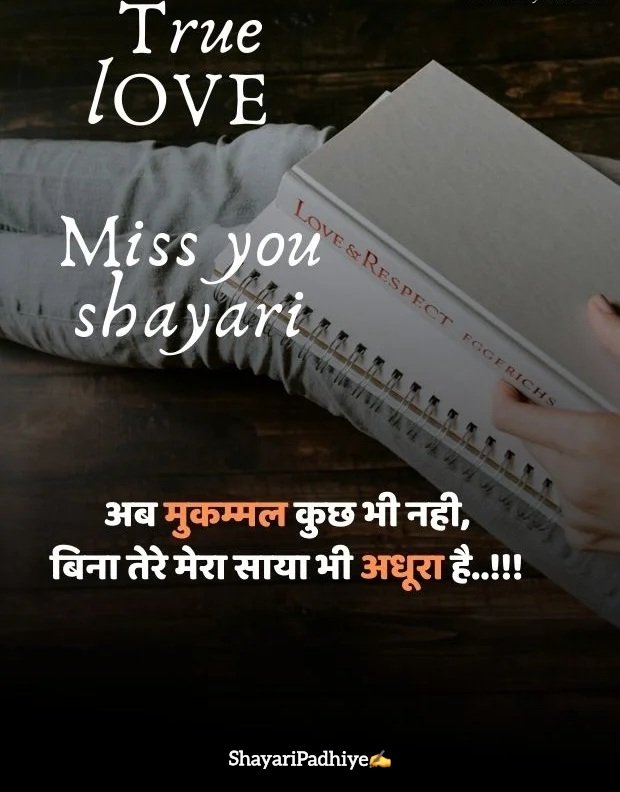 True
lOVE
Miss you
shayari
LOVE & RESPECT EGGERICHS
अब मुकम्मल कुछ भी नही,
बिना तेरे मेरा साया भी अधूरा है..!!!
ShayariPadhiye✍️